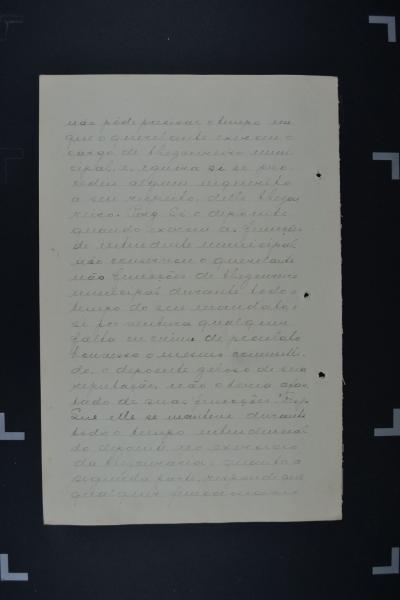 não póde precisar o tempo em
que o querellante exerceu o
cargo de thezoureiro muni
cipal, e, ignora si se pro
cedeu algum inquerito
a seu respeito, delle thezou
reiro. Perg. Si o depoente
quando exerceu as funcções
de intendente municipal
não conservou o querellante
nas funcções de thezoureiro
municipal durante todo o
tempo do seu mandato, e
se por ventura qualquer
falta ou crime de peculato
houvesse o mesmo commetti
do, o depoente zeloso de sua
reputação, não o teria afas
tado de suas funcções? Resp.
Que elle se manteve durante
todo o tempo intendencia
do depoente no exercicio
da thezouraria; quanto a
segunda parte, responde que
qualquer funccionario